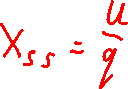 X_{ss} = \frac{u}{q}